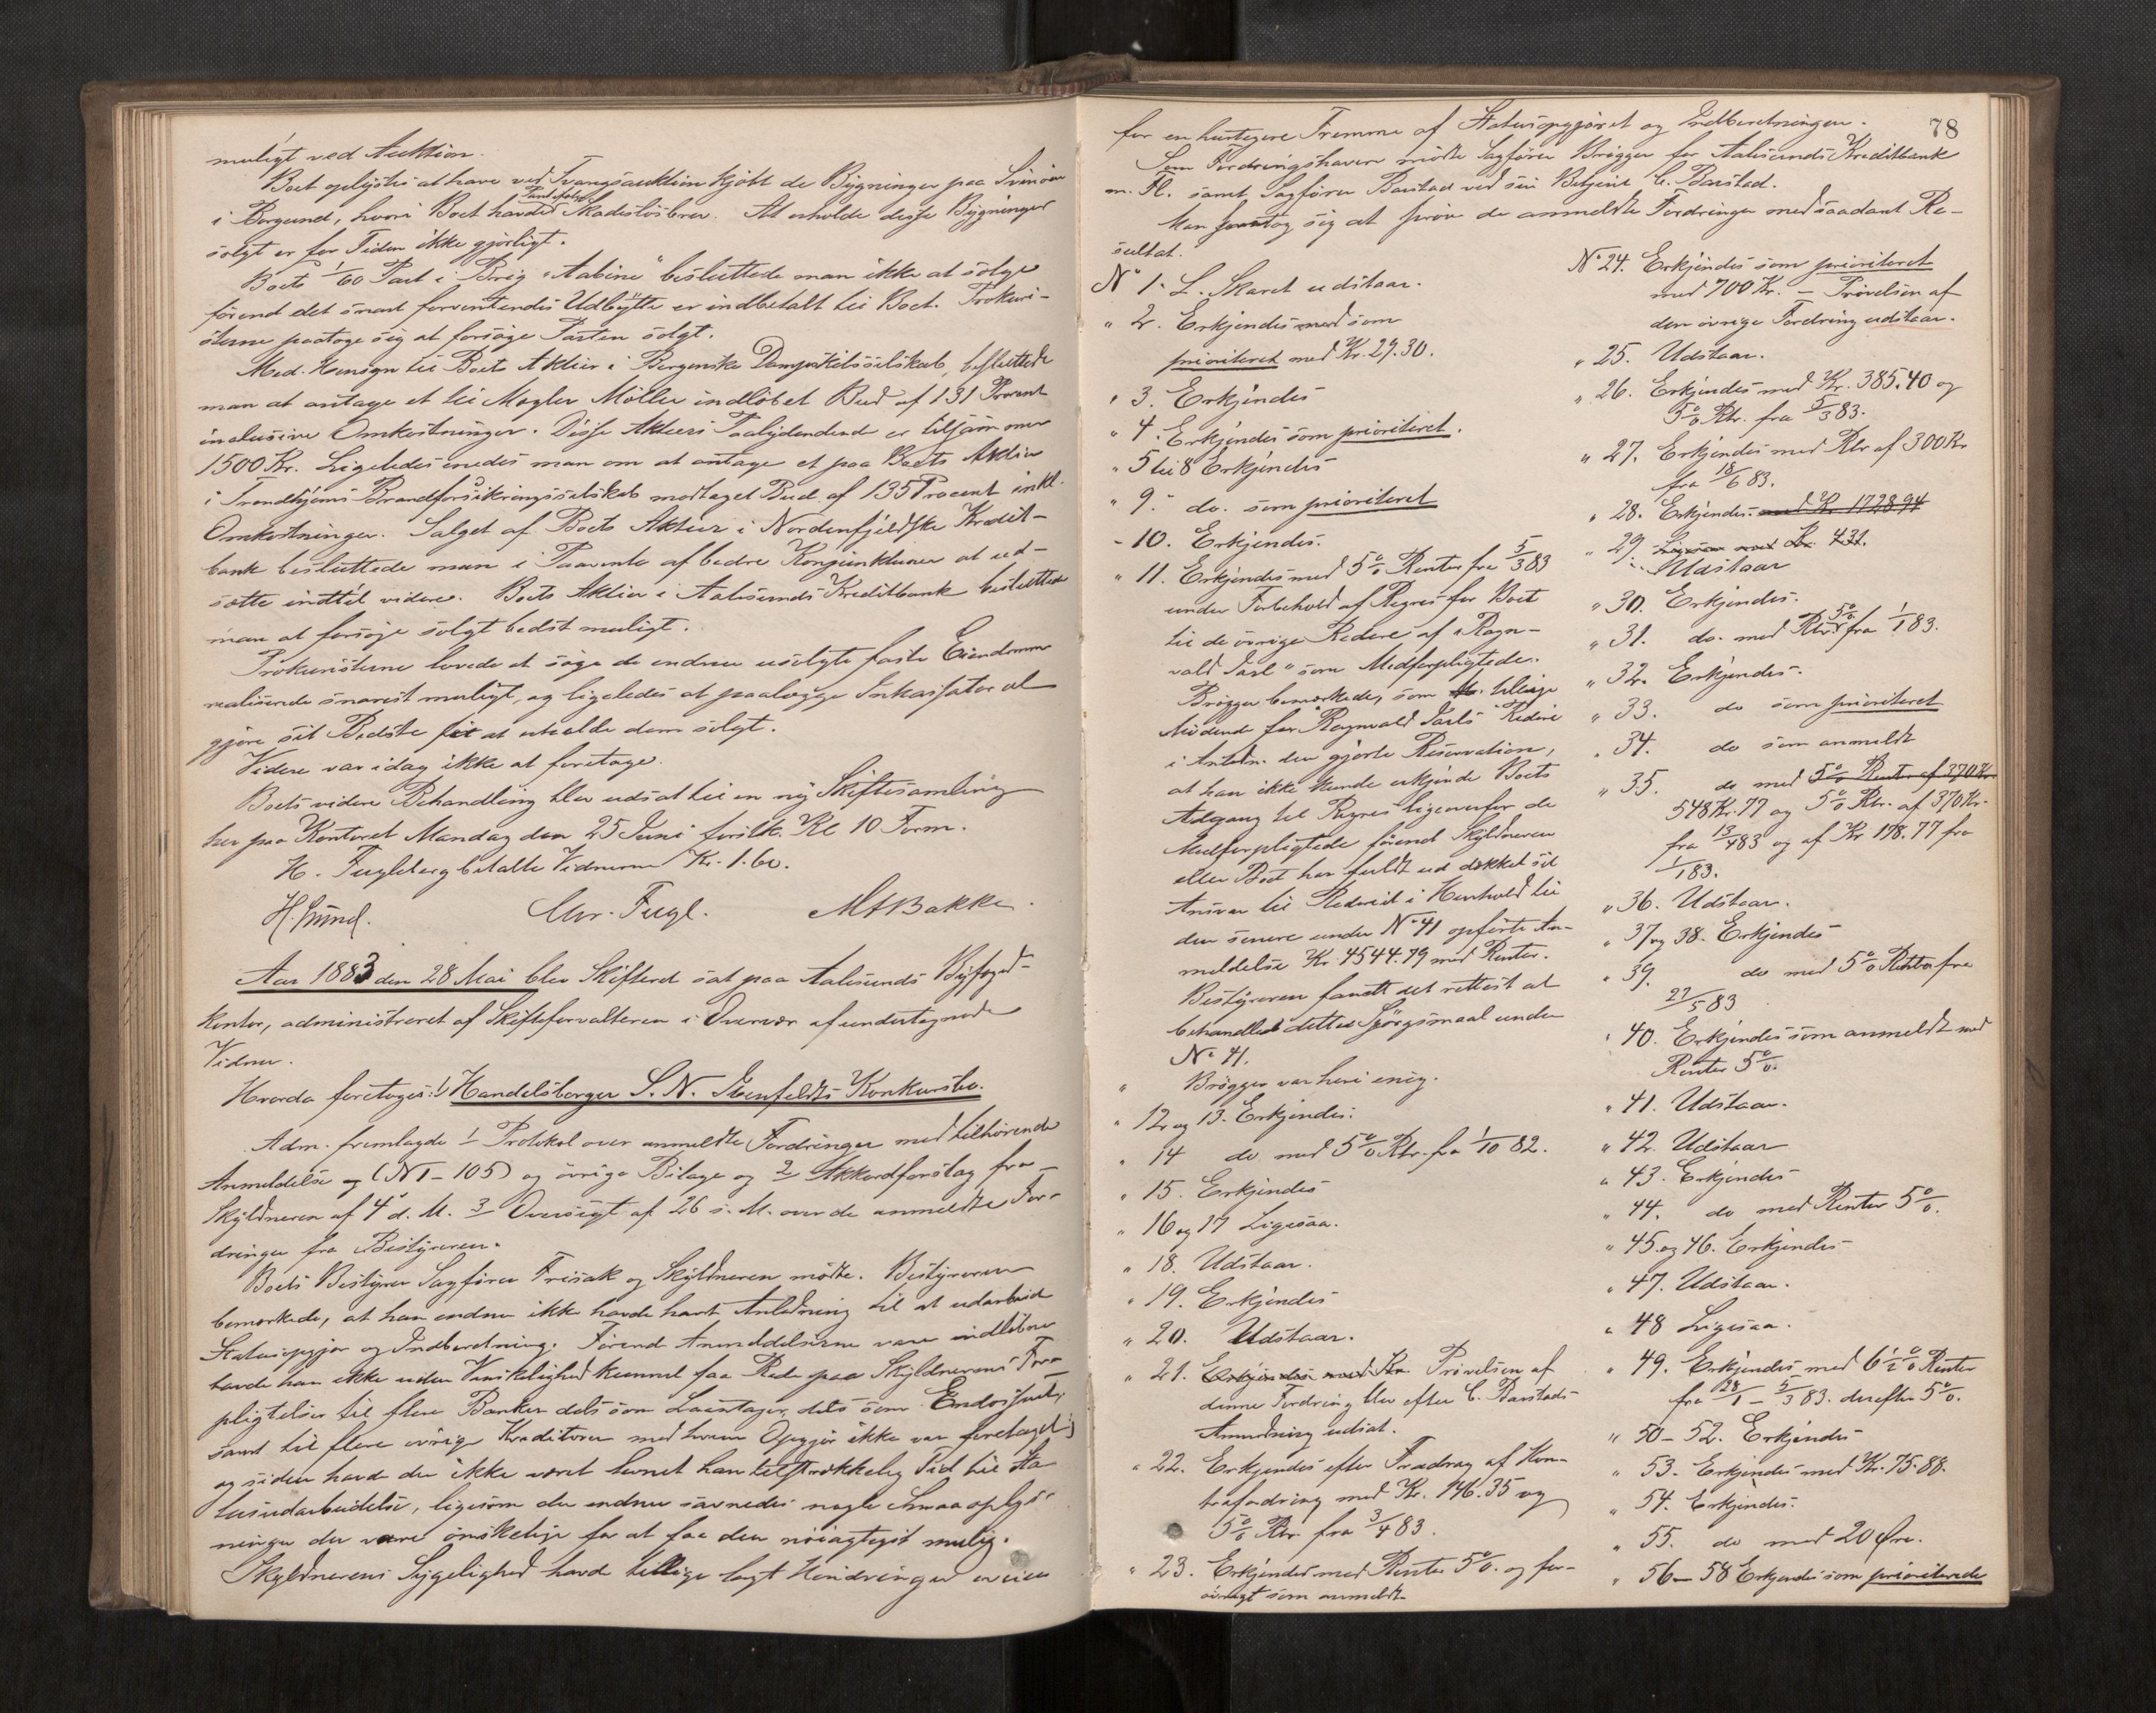 muligt ved Auktion.
Boet oplystes at have ved Tvangsauktion kjøbt de Bygninger paa Svinøen
i Borgund, hvori Boet havde Panteheftels Skadesløsbrev. At erholde disse Bygninger
solgt er for Tiden ikke gjørligt.
Boets 1/60 Part i Brig "Aabine" besluttede man ikke at sælge
førend det snart forventendes Udbytte er indbetalt til Boet. Prokuri-
sterne paatoge sig at forsøge Parten solgt.
Med Hensyn til Boets Aktier i Bergenske Dampskibsselskab, besluttede
man at antage et til Mægler Møller indløbet Bud af 131 Procent
inclusive Omkostninger. Disse Aktiers Paalydendende er tilsammen
1500 Kr. Ligeledes enedes man om at antage et paa Boets Aktier
i Trondhjems Brandforsikringsselskab modtaget Bud af 135 Procent inkl.
Omkostninger. Salget af Boets Aktier i Nordenfjeldske Kredit-
bank besluttede man i Paavente af bedre Konjunkturer at ud-
sætte indtil videre. Boets Aktier i Aalesunds Kreditbank besluttede
man at forsøge solgt bedst muligt.
Prokuristerne lovede at søge de endnu usolgte faste Eiendomme
realiserede snarest muligt, og ligeledes at paalægge Inkassator at
gjøre sit Bedste for at erholde dem solgt.
Videre var idag ikke at foretage.
Boets videre Behandling blev udsat til en ny Skiftesamling
her paa Kontoret Mandag den 25 Juni førstk. Kl 10 Form.
H. Fugleberg betalte Vidnerne Kr. 1.60.
H. Lund. Chr. Fugl. M A Bakke.
Aar 1883 den 28 Mai blev Skifteret sat paa Aalesunds Byfoged-
kontor, administreret af Skifteforvalteren i Overvær af undertegnede
Vidner.
Hvorda foretoges: 1/ Handelsborger S. N. Konkursbo.
Adm. fremlagde 1/ Protokol over anmeldte Fordringer med tilhørende
Anmeldelser og (N 1 - 105) og øvrige Bilage og 2/ Akkordforslag fra
Skyldneren af 4 d. M. 3/ Oversigt af 26 s. M. over de anmeldte For-
dringer fra Bestyreren.
Boets Bestyrer Sagfører Frisak og Skyldneren mødte. Bestyreren
bemærkede, at han endnu ikke havde havt Anledning til at udarbeide
Statusopgjør og Indberetning. Førend Anmeldelserne vare indløbne
havde han ikke uden Vanskelighed kunnet faa Rede paa Skyldnerens For-
pligtelser til flere Banker dels som Laantager, dels som Endossent,
samt til flere øvrige Kreditorer med hvem Opgjør ikke var foretaget;
og siden havde der ikke været levnet ham tilstrækkelig Tid til Sta-
tusudarbeidelse, ligesom der endnu savnedes nogle Smaaoplys-
ninger der vare ønskelige for at faa den nøiagtigst mulig.
Skyldnerens Sygelighed havde tillige lagt Hindringer iveien
78
for en hurtigere Fremme af Statusopgjøret og Indberetningen.
Som Fordringshavere mødte Sagfører Brøgger for Aalesunds Kreditbank
m. Fl. samt Sagfører Barstad ved sin Betjent C. Barstad.
Man foretog sig at prøve de anmeldte Fordringer med saadant Re-
sultat.
No 1. L. Skaret udstaar.
" 2. Erkjendes med som
prioriteret med Kr. 29.30.
" 3. Erkjendes
" 4. Erkjendes som prioriteret.
" 5 til 8 Erkjendes
" 9. do. som prioriteret
- 10. Erkjendes.
" 11. Erkjendes med 5 % Renter fra 5/3 83
under Forbehold af Regres for Boet
til de øvrige Redere af "Ragn-
vald Jarl" som Medforpligtede.
Brøgger bemærkede, som tillige
Mødende for "Ragnvald Jarls" Rederi
i Anledn. den gjorte Reservation,
at han ikke kunde erkjende Boets
Adgang til Regres ligeoverfor de
Medforpligtede førend Skyldneren
eller Boet har fuldt ud dækket sit
Ansvar til Rederiet i Henhold til
den senere under No 41 opførte An-
meldelse Kr. 4544.79 med Renter.
Bestyreren fandt det rettest at
behandlet dette Spørgsmaal under
No 41.
" Brøgger var heri enig.
" 12 og 13. Erkjendes.
" 14 do med 5 % Rtr. fra 1/10 82.
" 15. Erkjendes
" 16 og 17 Ligesaa.
" 18. Udstaar.
" 19. Erkjendes
" 20. Udstaar.
" 21. Erkjendes med Kr. Prøvelsen af
denne Fordring blev efter C. Barstads
Anmodning udsat.
" 22. Erkjendes efter Fradrag af Kon-
trafordring med Kr. 146.35 og
5 % Rtr. fra 3/4 83.
" 23. Erkjendes med Renter 5 %. og for-
øvrigt som anmeldt.
No 24. Erkjendes som prioriteret
med 700 Kr. - Prøvelsen af
den øvrige Fordring udstaar.
" 25. Udstaar.
" 26. Erkjendes med Kr. 385.40 og
5 % Rtr. fra 5/3 83.
" 27. Erkjendes med Rtr af 300 Kr
fra 18/6 83.
" 28. Erkjendes. med Kr. 1728.94
" 29. Ligesaa med Kr. 431.
Udstaar
" 30. Erkjendes.
" 31. do. med Rtr 5 % fra 1/1 83.
" 32. Erkjendes.
" 33. do som prioriteret
" 34. do som anmeldt
" 35. do med 5 % Renter af 370 Kr.
548 Kr. 77 og 5 % Rtr. af 370 Kr.
fra 13/4 83 og af Kr 178.77 fra
1/1 83.
" 36. Udstaar.
" 37 og 38. Erkjendes
" 39. do med 5 % Renter fra
27/5 83
" 40. Erkjendes som anmeldt med
Renter 5 %.
" 41. Udstaar.
" 42. Udstaar
" 43. Erkjendes
" 44. do med Renter 5 %.
" 45. og 46. Erkjendes
" 47. Udstaar.
" 48 Ligesaa.
" 49. Erkjendes med 6 1/2 % Renter
fra 28/1 - 5/3 83. derefter 5 %.
" 50 - 52. Erkjendes
" 53. Erkjendes med Kr. 75.88.
" 54. Erkjendes.
" 55. do med 20 Øre.
" 56 - 58 Erkjendes som prioriterede